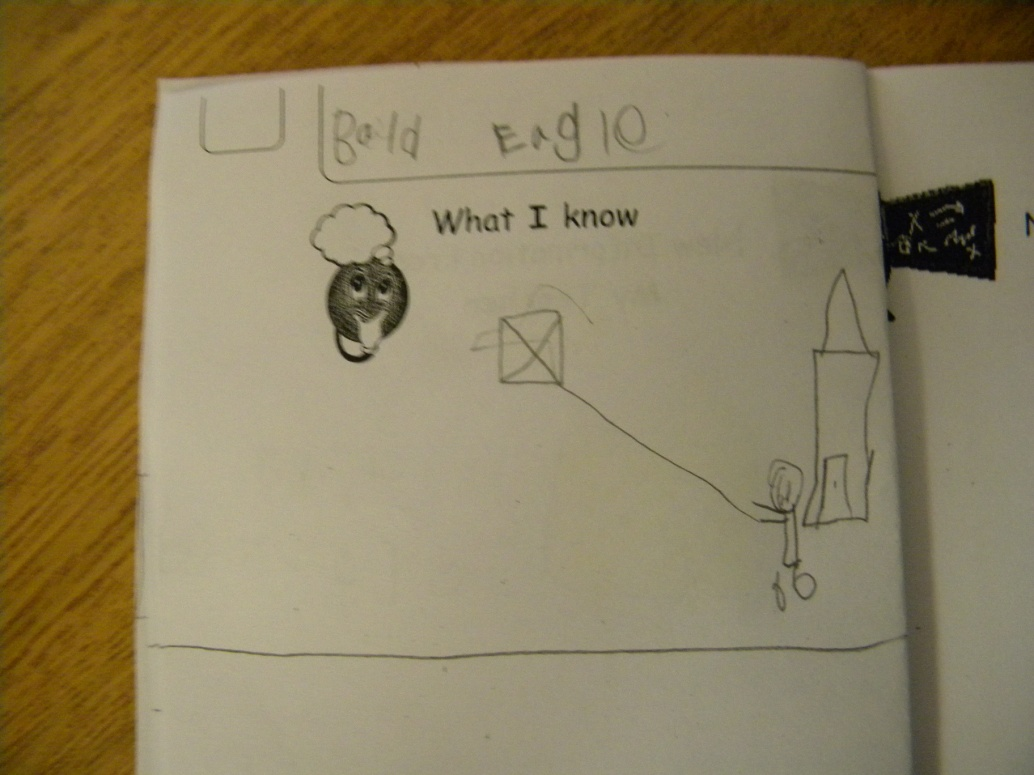 Baild Eagle
What I know
N